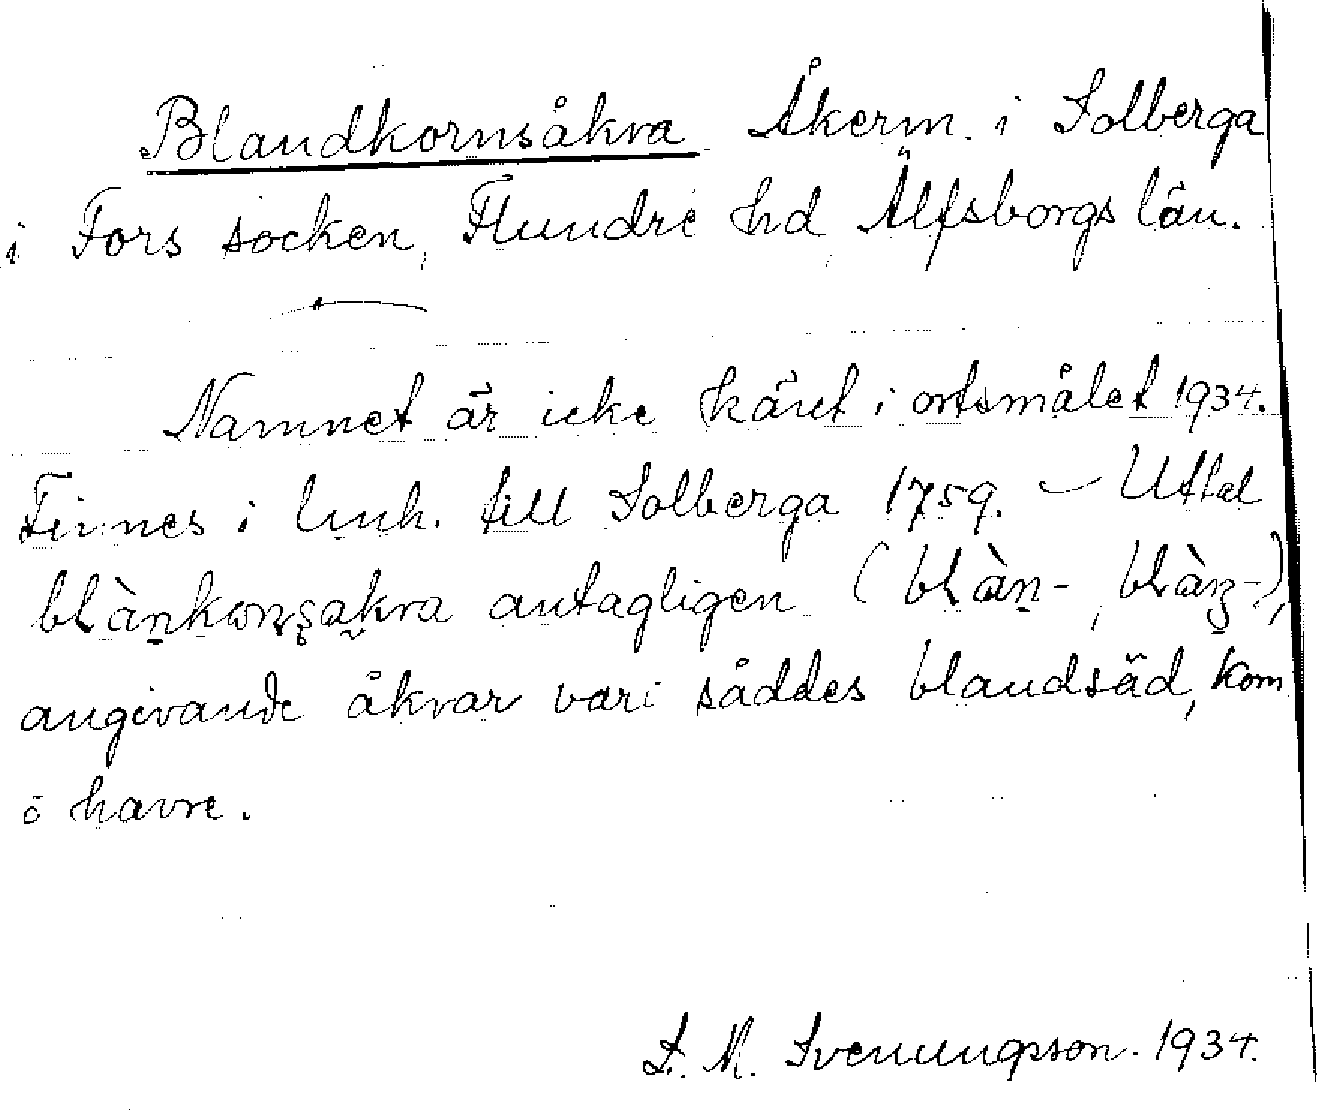 Blandkornsåkra Åkerm. i Solberga
i Fors socken, Flundre hd Älfsborgs län.
Namnet är icke känt i ortsmålet 1934.
Finnes i lmh. till Solberga 1759. – Uttal
antagligen
angivande åkrar vari såddes blandsäd, korn
o havre.
S. M. Svenungsson. 1934.